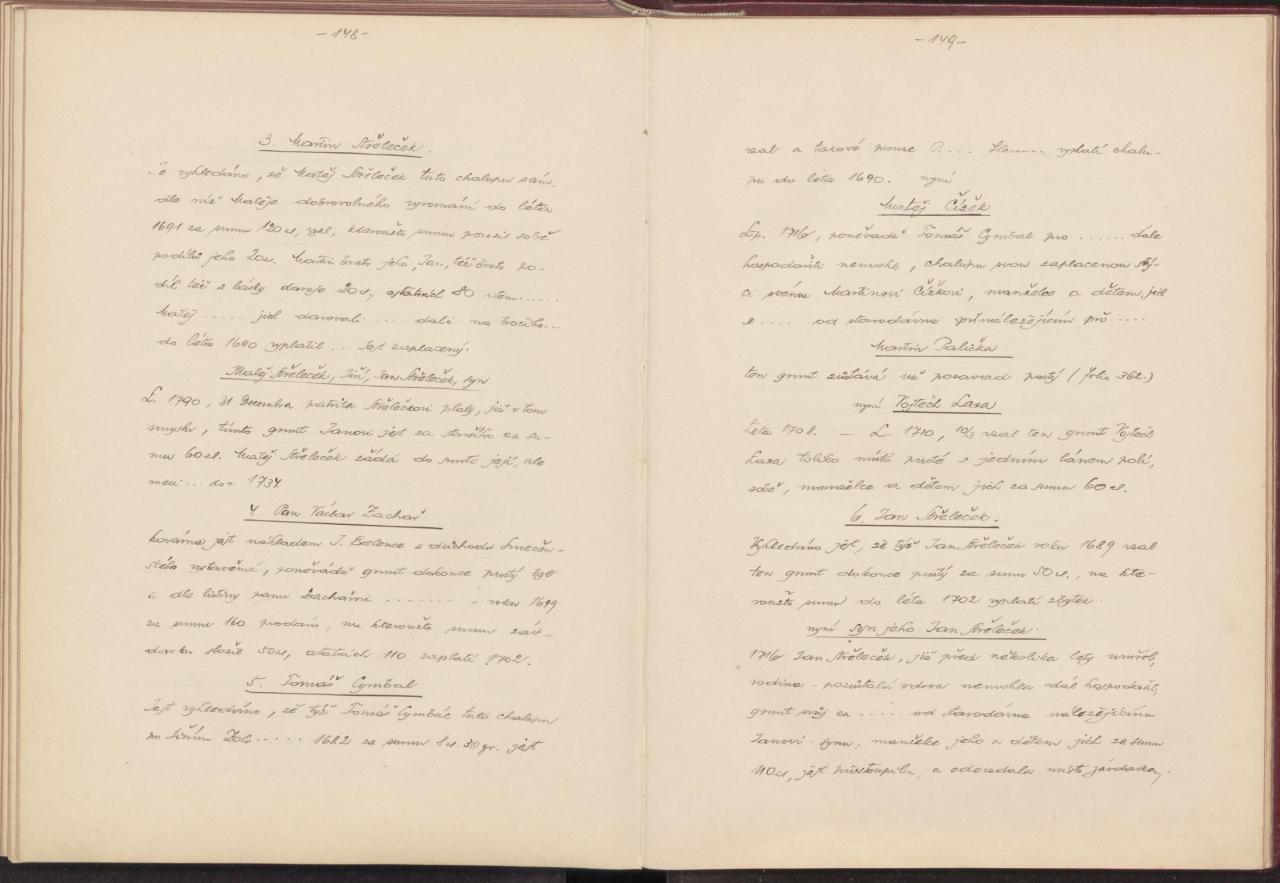 - 148 -
3. Martin Střeleček.
Je vyhledáno, že Matěj Střeleček tuto chalupu sám,
dle níž Matěje dobrovolného vyrovnání do léta
1691 za sumu 120 zl, vzal, kteroužto sumu porazil sobě
podílu jeho 20 zl. Martin bratr jeho, Jan, též bratr po-
díl též z lásky daruje 20 zl, ostatních 80 .....
Matěj ..... jich darovali .... dali na ...
do léta 1690 vyplatil ... Jest zaplacený.
Matěj Střeleček, Jiří, Jan Střeleček, syn
L. 1790, 31 Decembra patřila Střelečkovi platy, již v tom
smyslu, tímto grunt Janovi jest za staršího za su-
mu 60 zl. Matěj Střeleček žádá do smrti její, ale
mezi ... do r. 1734
4. Pan Václav Zachař
kovárna jest nákladem J. Excelence z důchodu Smečen-
ského vystavěná, poněvádž grunt dokonce pustý byl
a dle listiny panu Zachařmi ......... roku 1699
za sumu 160 prodán, na kteroužto sumu záv-
davku složil 50 zl, ostatních 110 zaplatí 1702.
5. Tomáš Cymbal
Jest vyhledáno, že týž Tomáš Cymbál tuto chalupu
po ..... 1682 za sumu 8 zl. 30 gr. jest
- 149 -
vzal a takové pouze P.... vyplatí chalu-
pu do léta 1690. nyní
Matěj Čížek
Lp. 1716, poněvadž Tomáš Cymbal pro ...... dále
hospodařiti nemohl, chalupu svou zaplacenou
ci svému Martinovi Čížkovi, manželce a dětem jich
s .... od starodávna přináležejícím při .....
Martin Palička
ten grunt zůstává už posavad pustý (folio 362.)
nyní Vojtěch Laxa
Léta 1708. - L. 1710, 10/3 vzal ten grunt Vojtěch
Laxa toliko místo pusté s jedním lánem polí,
sobě, manželce a dětem jich za sumu 60 zl.
6. Jan Střeleček.
Vyhledáno jest, že týž Jan Střeleček roku 1689 vzal
ten grunt dokonce pustý za sumu 50 zl., na kte-
roužto sumu do léta 1702 vyplatí zbytek.
nyní syn jeho Jan Střeleček.
1716 Jan Střeleček, již před několika lety umřel,
rodina - pozůstalá vdova nemohla dál hospodařit,
grunt svůj za .... od starodávna náležejícímu
Janovi synu, manželce jeho a dětem jich za sumu
110 zl, jest přistoupila, a odevzdala místo závdavku,